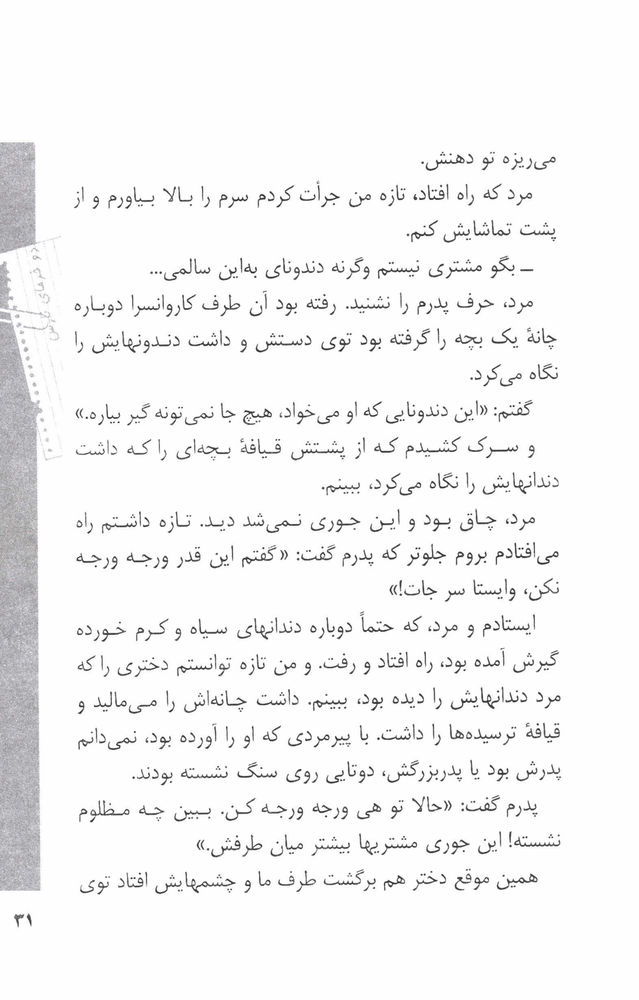 می‌ریزه تو دهنش.
مرد که راه افتاد، تازه من جرأت کردم سرم را بالا بیاورم و از
پشت تماشایش کنم.
ــ بگو مشتری نیستم وگرنه دندونای به‌این سالمی...
مرد، حرف پدرم را نشنید. رفته بود آن طرف کاروانسرا دوباره
چانهٔ یک بچه را گرفته بود توی دستش و داشت دندونهایش را
نگاه می‌کرد.
گفتم: «این دندونایی که او می‌خواد، هیچ جا نمی‌تونه گیر بیاره.»
و سرک کشیدم که از پشتش قیافهٔ بچه‌ای را که داشت
دندانهایش را نگاه می‌کرد، ببینم.
مرد، چاق بود و این جوری نمی‌شد دید. تازه داشتم راه
می‌افتادم بروم جلوتر که پدرم گفت: «گفتم این قدر ورجه ورجه
نکن، وایستا سر جات!»
ایستادم و مرد، که حتماً دوباره دندانهای سیاه و کرم خورده
گیرش آمده بود، راه افتاد و رفت. و من تازه توانستم دختری را که
مرد دندانهایش را دیده بود، ببینم. داشت چانه‌اش را می‌مالید و
قیافهٔ ترسیده‌ها را داشت. با پیرمردی که او را آورده بود، نمی‌دانم
پدرش بود یا پدربزرگش، دوتایی روی سنگ نشسته بودند.
پدرم گفت: «حالا تو هی ورجه ورجه کن. ببین چه مظلوم
نشسته! این جوری مشتریها بیشتر میان طرفش.»
همین موقع دختر هم برگشت طرف ما و چشمهایش افتاد توی
۳۱